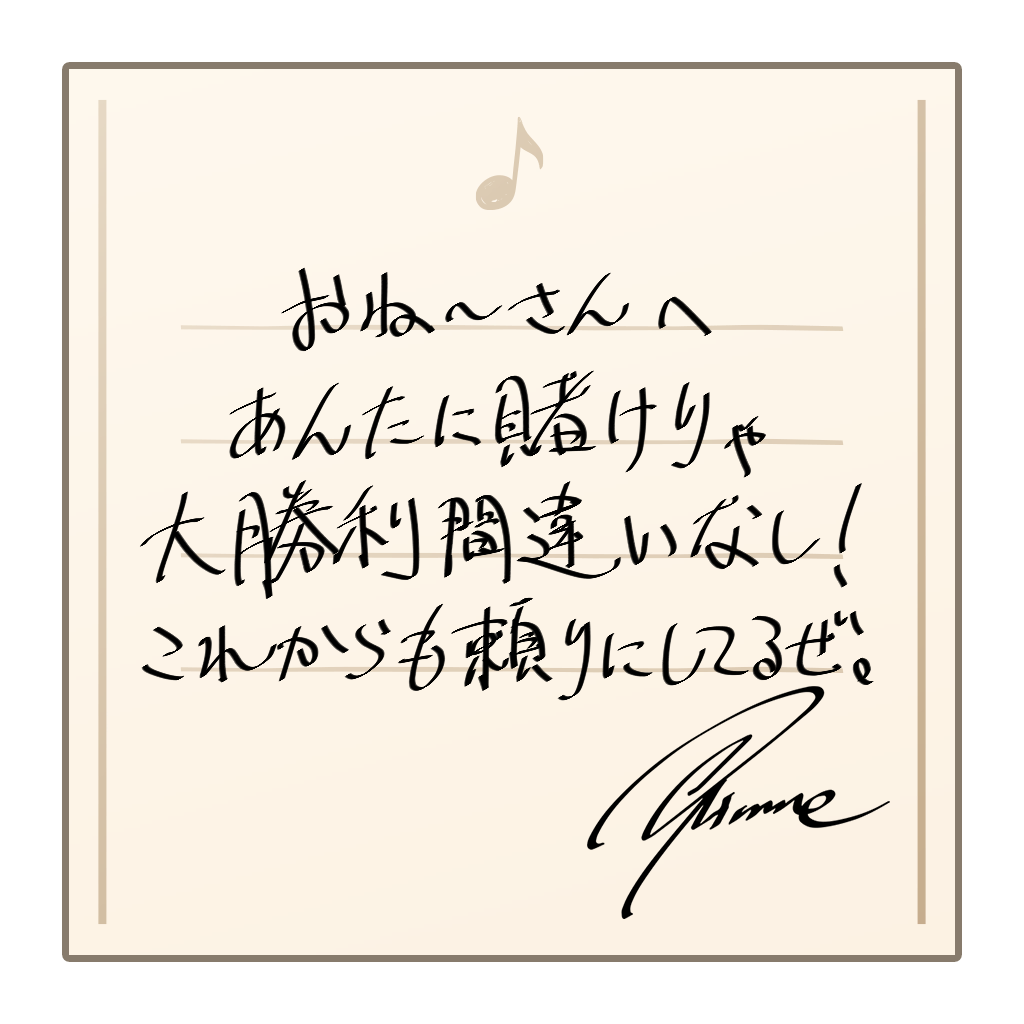 おね〜さんへ
あんたに賭けりゃ
大勝利間違いなし!
これからも頼りにしてるぜ。